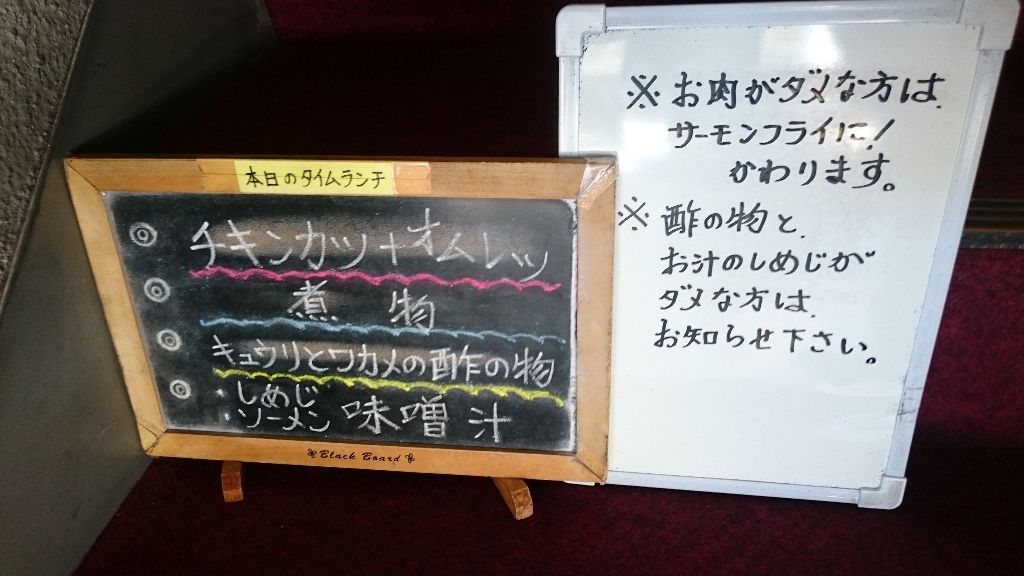 本日のタイムランチ
◎ チキンカツ+オムレツ
◎ 煮物
◎ キュウリとワカメの酢の物
◎ ・しめじ
・ソーメン 味噌汁
Black Board
※お肉がダメな方は、
サーモンフライに!
かわります。
※酢の物と、
お汁のしめじが
ダメな方は、
お知らせ下さい。